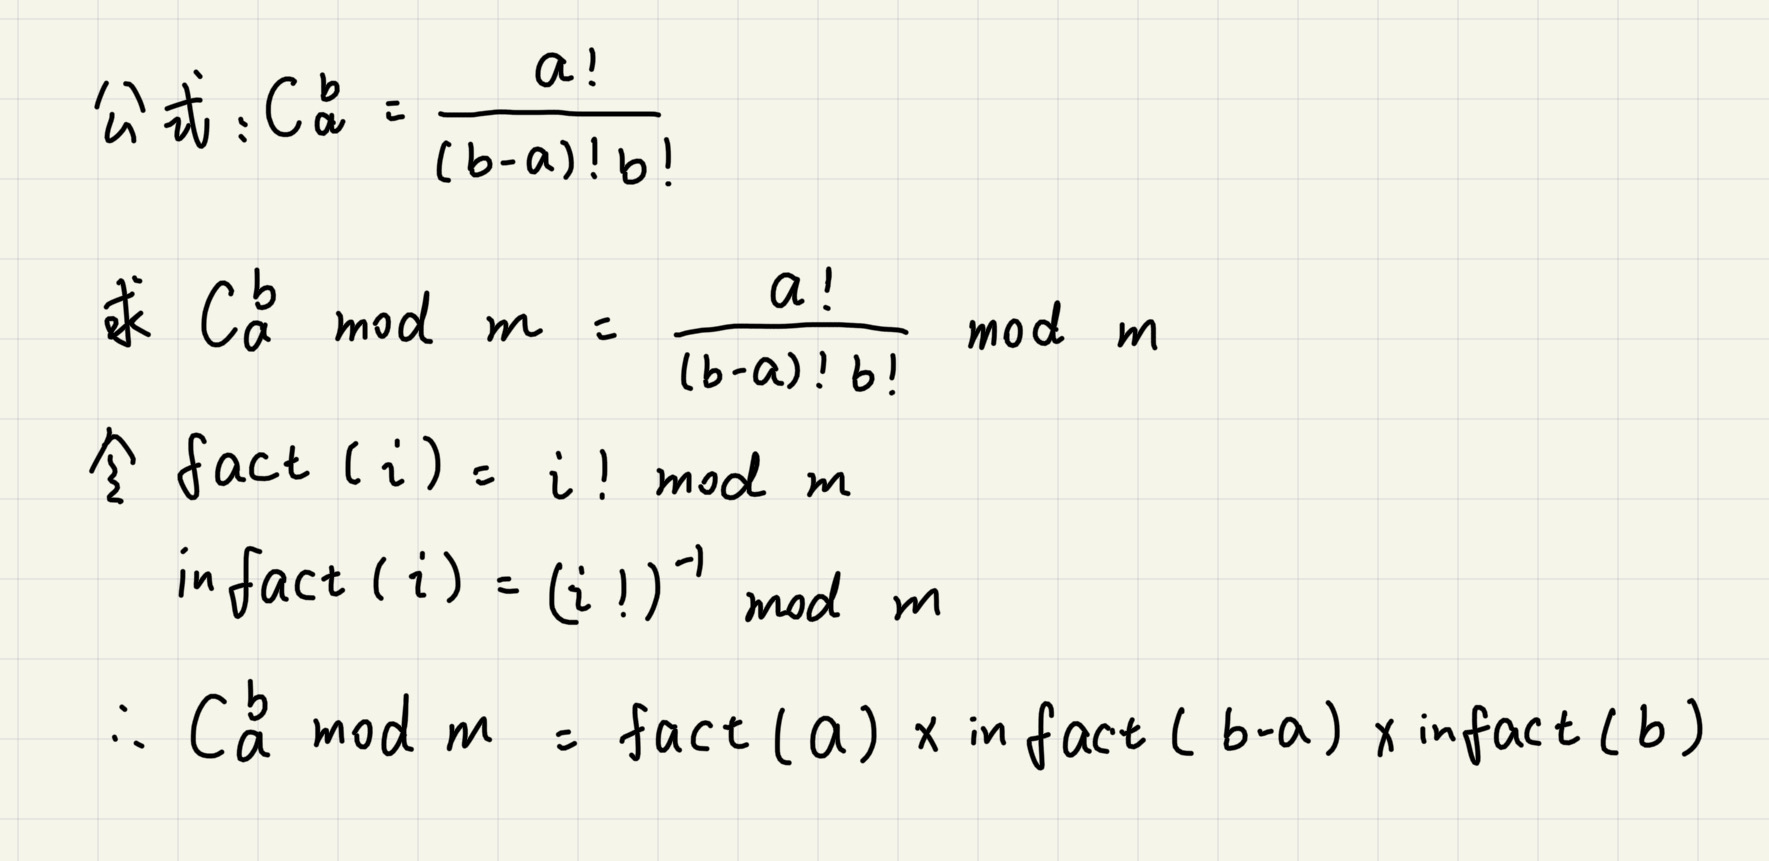 公式：C_a^b = a! / (b-a)! b!
求 C_a^b mod m = a! / (b-a)! b! mod m
令 fact(i) = i! mod m
infact(i) = (i!)^{-1} mod m
∴ C_a^b mod m = fact(a) × infact(b-a) × infact(b)